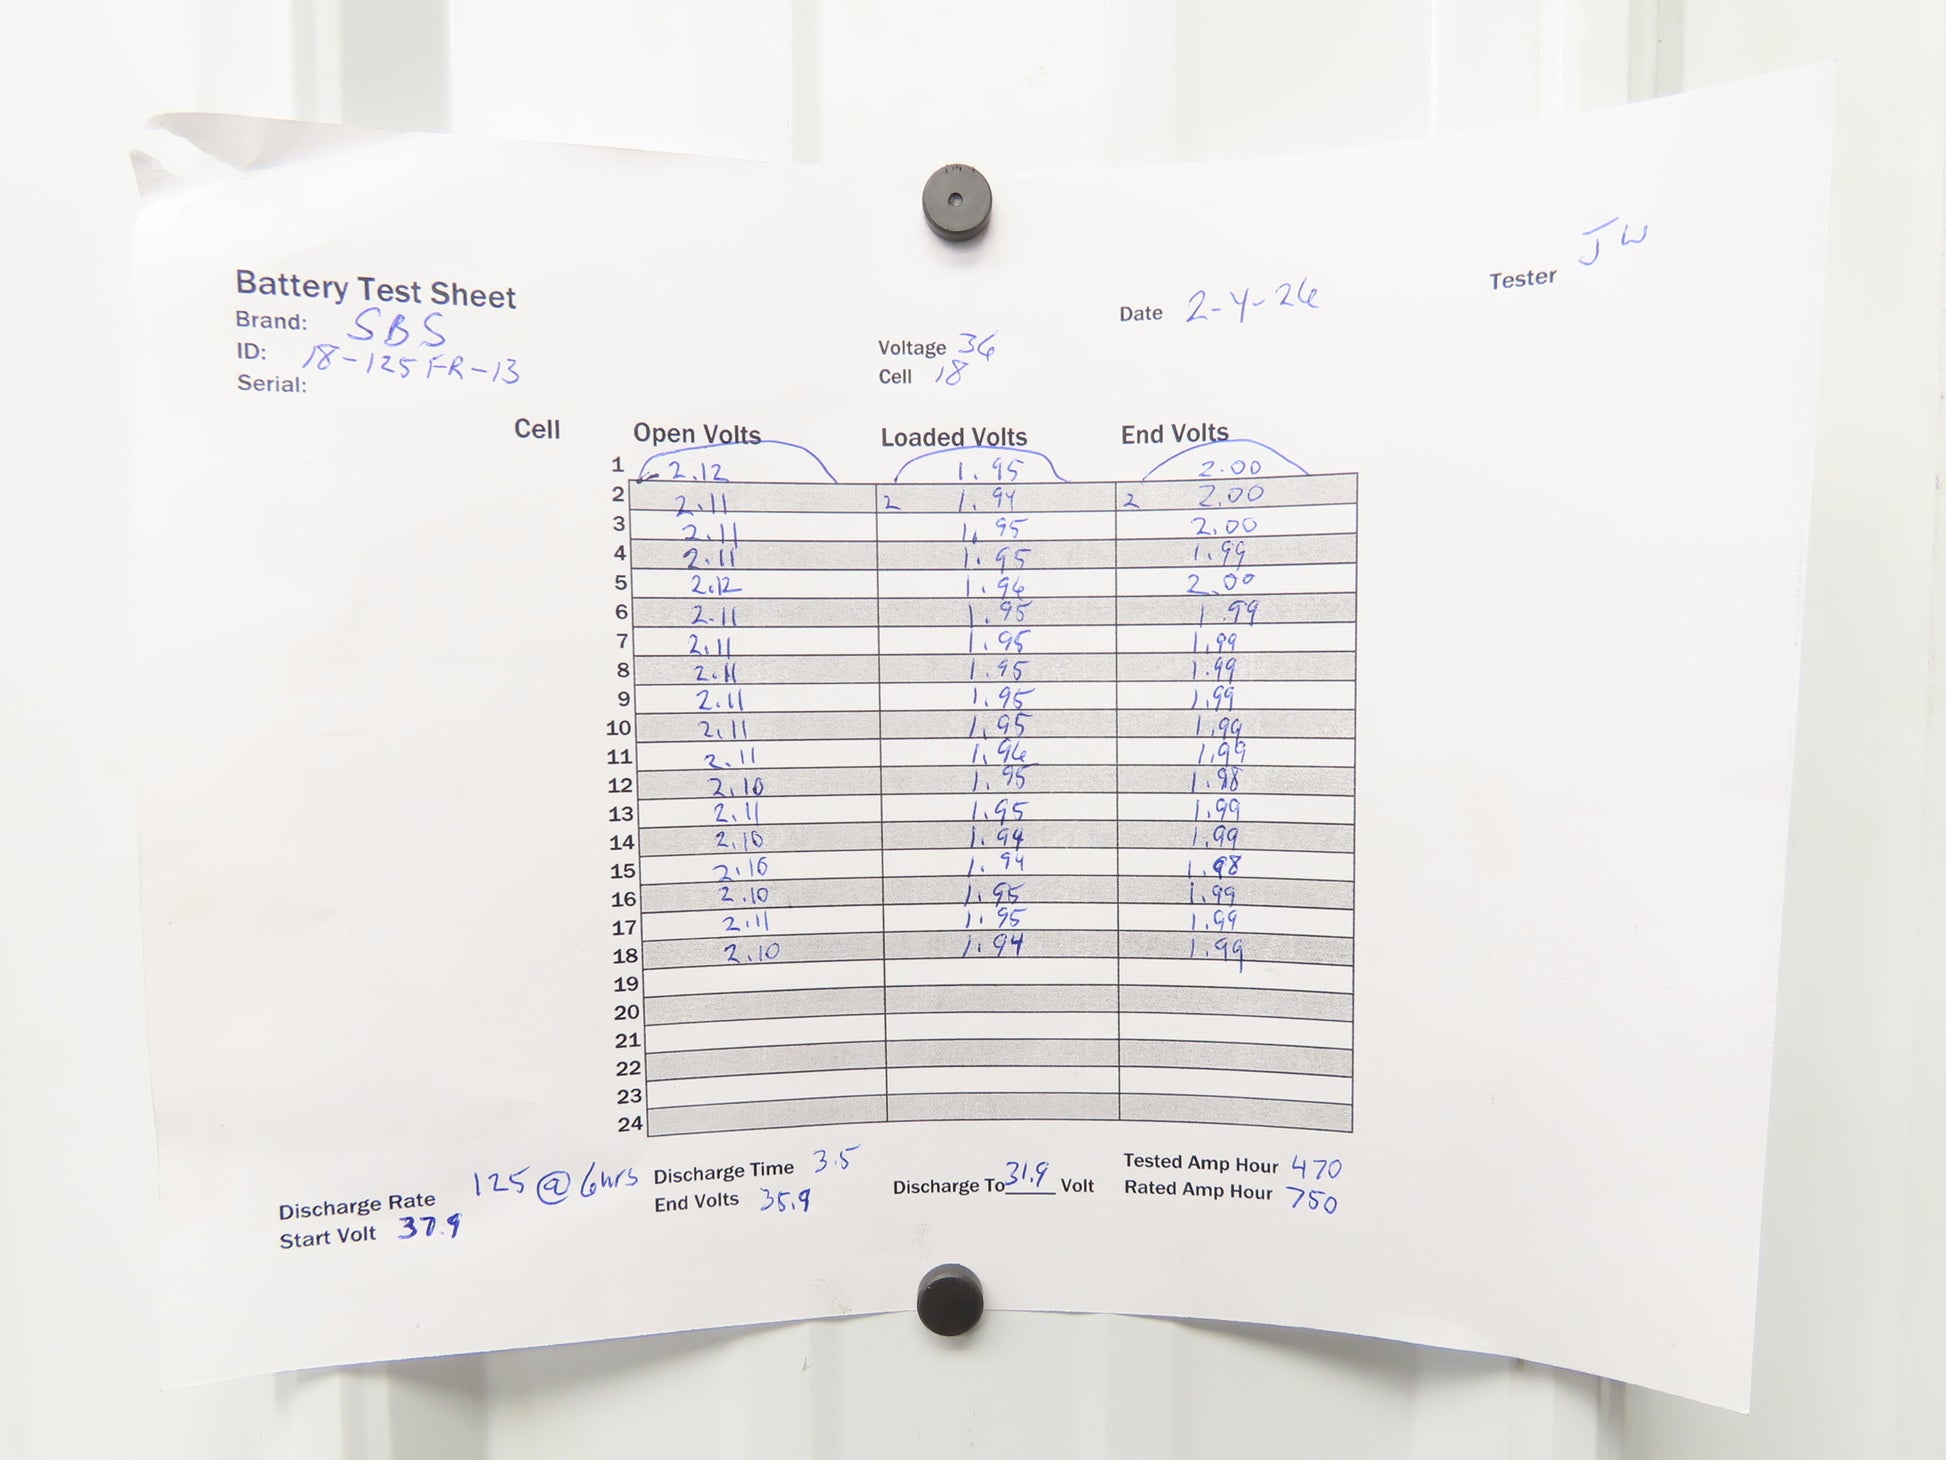 Tester JW
Battery Test Sheet
Date 2-4-26
Brand: SBS
Voltage 36
ID: 18-125FR-13
Cell 18
Serial:
Cell Open Volts Loaded Volts End Volts
1 2.12 1.95 2.00
2 2.11 2 1.94 2 2.00
3 2.11 1.95 2.00
4 2.11 1.95 1.99
5 2.12 1.96 2.00
6 2.11 1.95 1.99
7 2.11 1.95 1.99
8 2.11 1.95 1.99
9 2.11 1.95 1.99
10 2.11 1.95 1.99
11 2.11 1.96 1.99
12 2.10 1.95 1.98
13 2.11 1.95 1.99
14 2.10 1.94 1.99
15 2.10 1.94 1.98
16 2.10 1.95 1.99
17 2.11 1.95 1.99
18 2.10 1.94 1.99
19
20
21
22
23
24
Discharge Rate 125 @ 6hrs Discharge Time 3.5 Discharge To 31.9 Volt Tested Amp Hour 470
Start Volt 37.9 End Volts 35.9 Rated Amp Hour 750